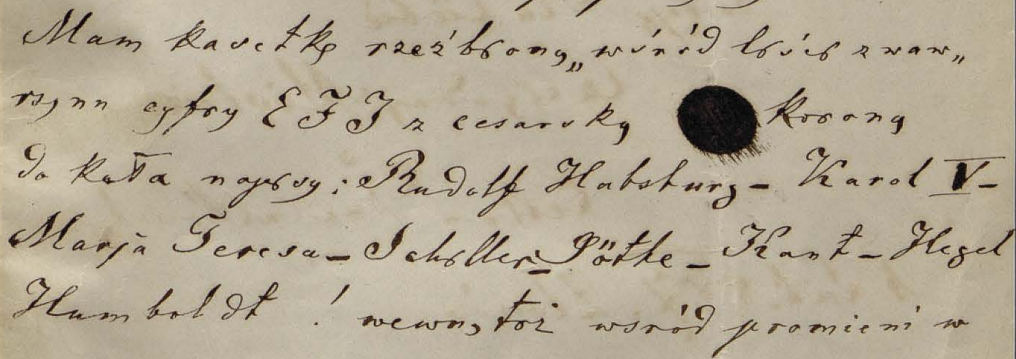 Mam kasetkę rzeźbioną „wśród liści z waw„
rzynu cyfry E F J z cesarską koroną
do koła napisy: Rudolf Habsburg – Karol V –
Marja Teresa – Schiller – Göthe – Kant – Hegel
Humboldt ! wewnątrz wsród promieni w